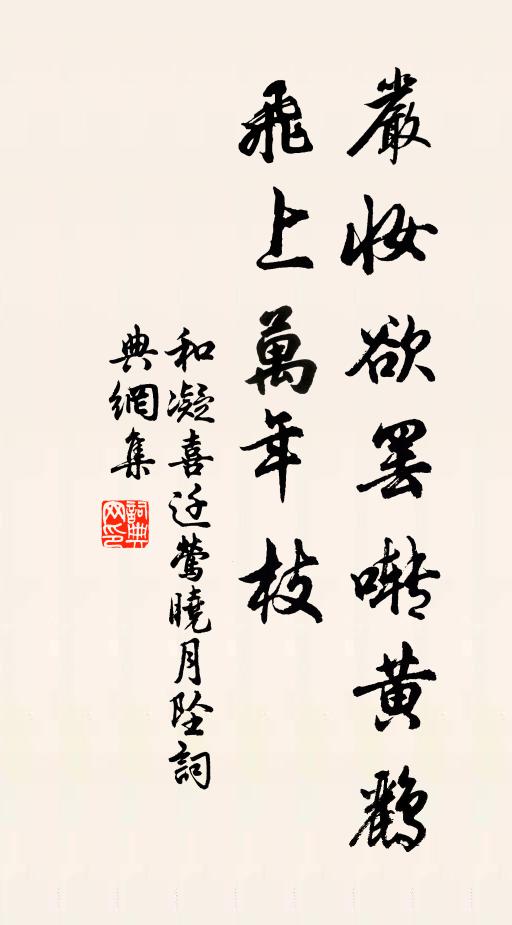 嚴妝欲罷囀黃鸝
飛上萬年枝
和凝喜迁鶯曉月墜詞
典網集
詞典
网印